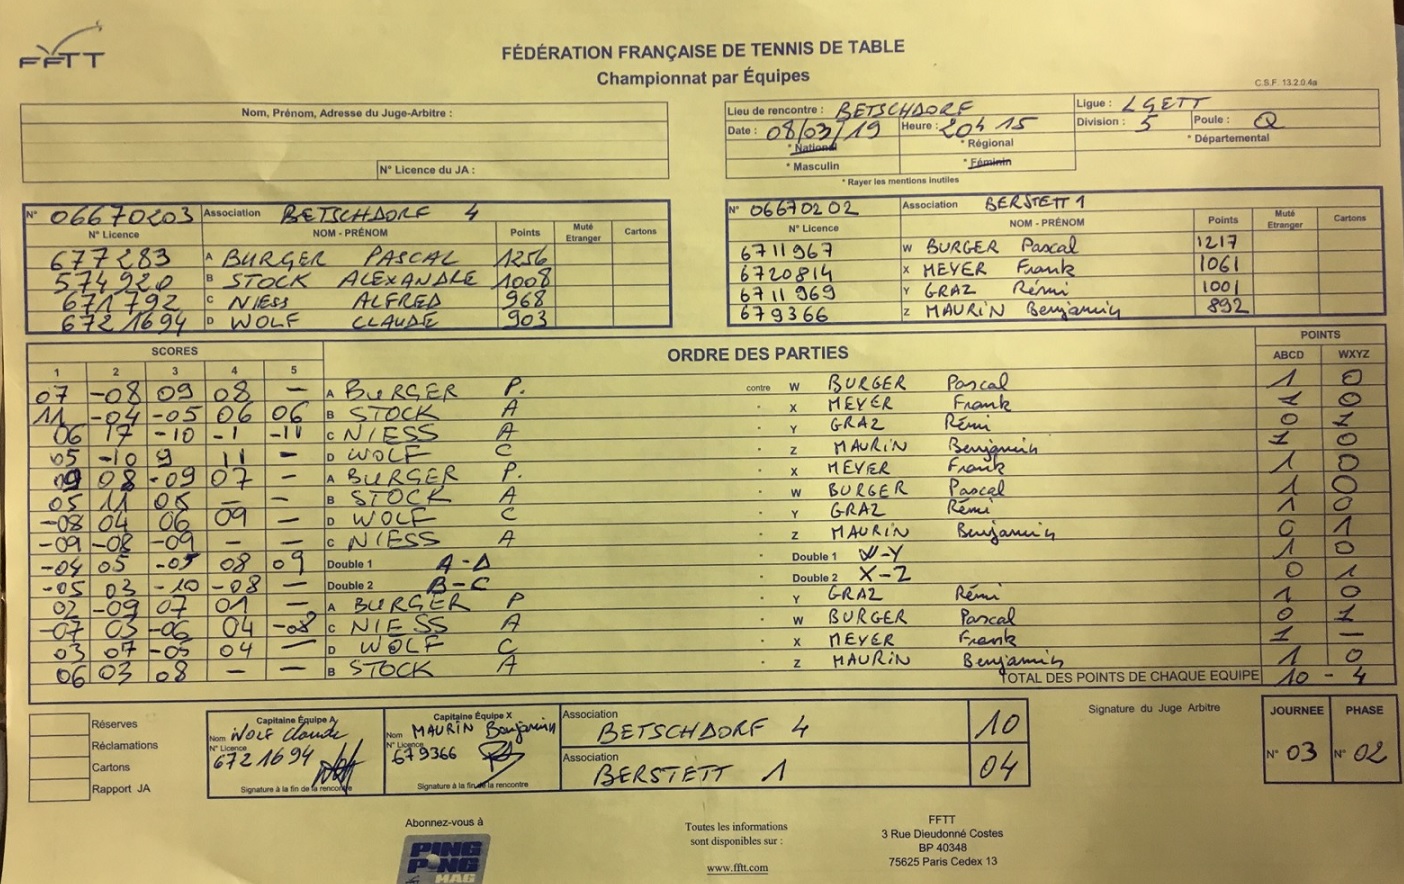 FFTT
FÉDÉRATION FRANÇAISE DE TENNIS DE TABLE
Championnat par Équipes
C.S.F. 13.2.0.4a
Nom, Prénom, Adresse du Juge-Arbitre :
N° Licence du JA :
Lieu de rencontre : BETSCHDORF Ligue : LGETT
Date : 08/03/19 Heure : 20h15 Division : 5 Poule : Q
* National * Régional * Départemental
* Masculin * Féminin
* Rayer les mentions inutiles
N° 06670203 Association BETSCHDORF 4
N° Licence NOM - PRÉNOM Points Muté Etranger Cartons
677283 A BURGER PASCAL 1256
574920 B STOCK ALEXANDRE 1008
671792 C NIESS ALFRED 968
6721694 D WOLF CLAUDE 903
N° 06670202 Association BERSTETT 1
N° Licence NOM - PRÉNOM Points Muté Etranger Cartons
6711967 W BURGER Pascal 1217
6720814 X MEYER Frank 1061
6711969 Y GRAZ Rémi 1001
679366 Z MAURIN Benjamin 892
SCORES ORDRE DES PARTIES POINTS
1 2 3 4 5 ABCD WXYZ
07 -08 09 08 — A BURGER P. contre W BURGER Pascal 1 0
11 -04 -05 06 06 B STOCK A X MEYER Frank 1 0
06 17 -10 -1 -11 C NIESS A Y GRAZ Rémi 0 1
05 -10 9 11 — D WOLF C Z MAURIN Benjamin 1 0
09 08 -09 07 — A BURGER P. X MEYER Frank 1 0
05 11 05 — — B STOCK A W BURGER Pascal 1 0
-08 04 06 09 — D WOLF C Y GRAZ Rémi 1 0
-09 -08 -09 — — C NIESS A Z MAURIN Benjamin 0 1
-04 05 -05 08 09 Double 1 A-D Double 1 W-Y 1 0
-05 03 -10 -08 — Double 2 B-C Double 2 X-Z 0 1
02 -09 07 01 — A BURGER P Y GRAZ Rémi 1 0
-07 03 -06 04 -08 C NIESS A W BURGER Pascal 0 1
03 07 -05 04 — D WOLF C X MEYER Frank 1 —
06 03 08 — — B STOCK A Z MAURIN Benjamin 1 0
TOTAL DES POINTS DE CHAQUE EQUIPE 10 - 4
Réserves
Réclamations
Cartons
Rapport JA
Capitaine Équipe A
Nom WOLF Claude
N° Licence
6721694
Signature à la fin de la rencontre
Capitaine Équipe X
Nom MAURIN Benjamin
N° Licence
679366
Signature à la fin de la rencontre
Association BETSCHDORF 4 10
Association BERSTETT 1 04
Signature du Juge Arbitre
JOURNEE PHASE
N° 03 N° 02
Abonnez-vous à
PING PONG MAG
Toutes les informations
sont disponibles sur :
www.fftt.com
FFTT
3 Rue Dieudonné Costes
BP 40348
75625 Paris Cedex 13